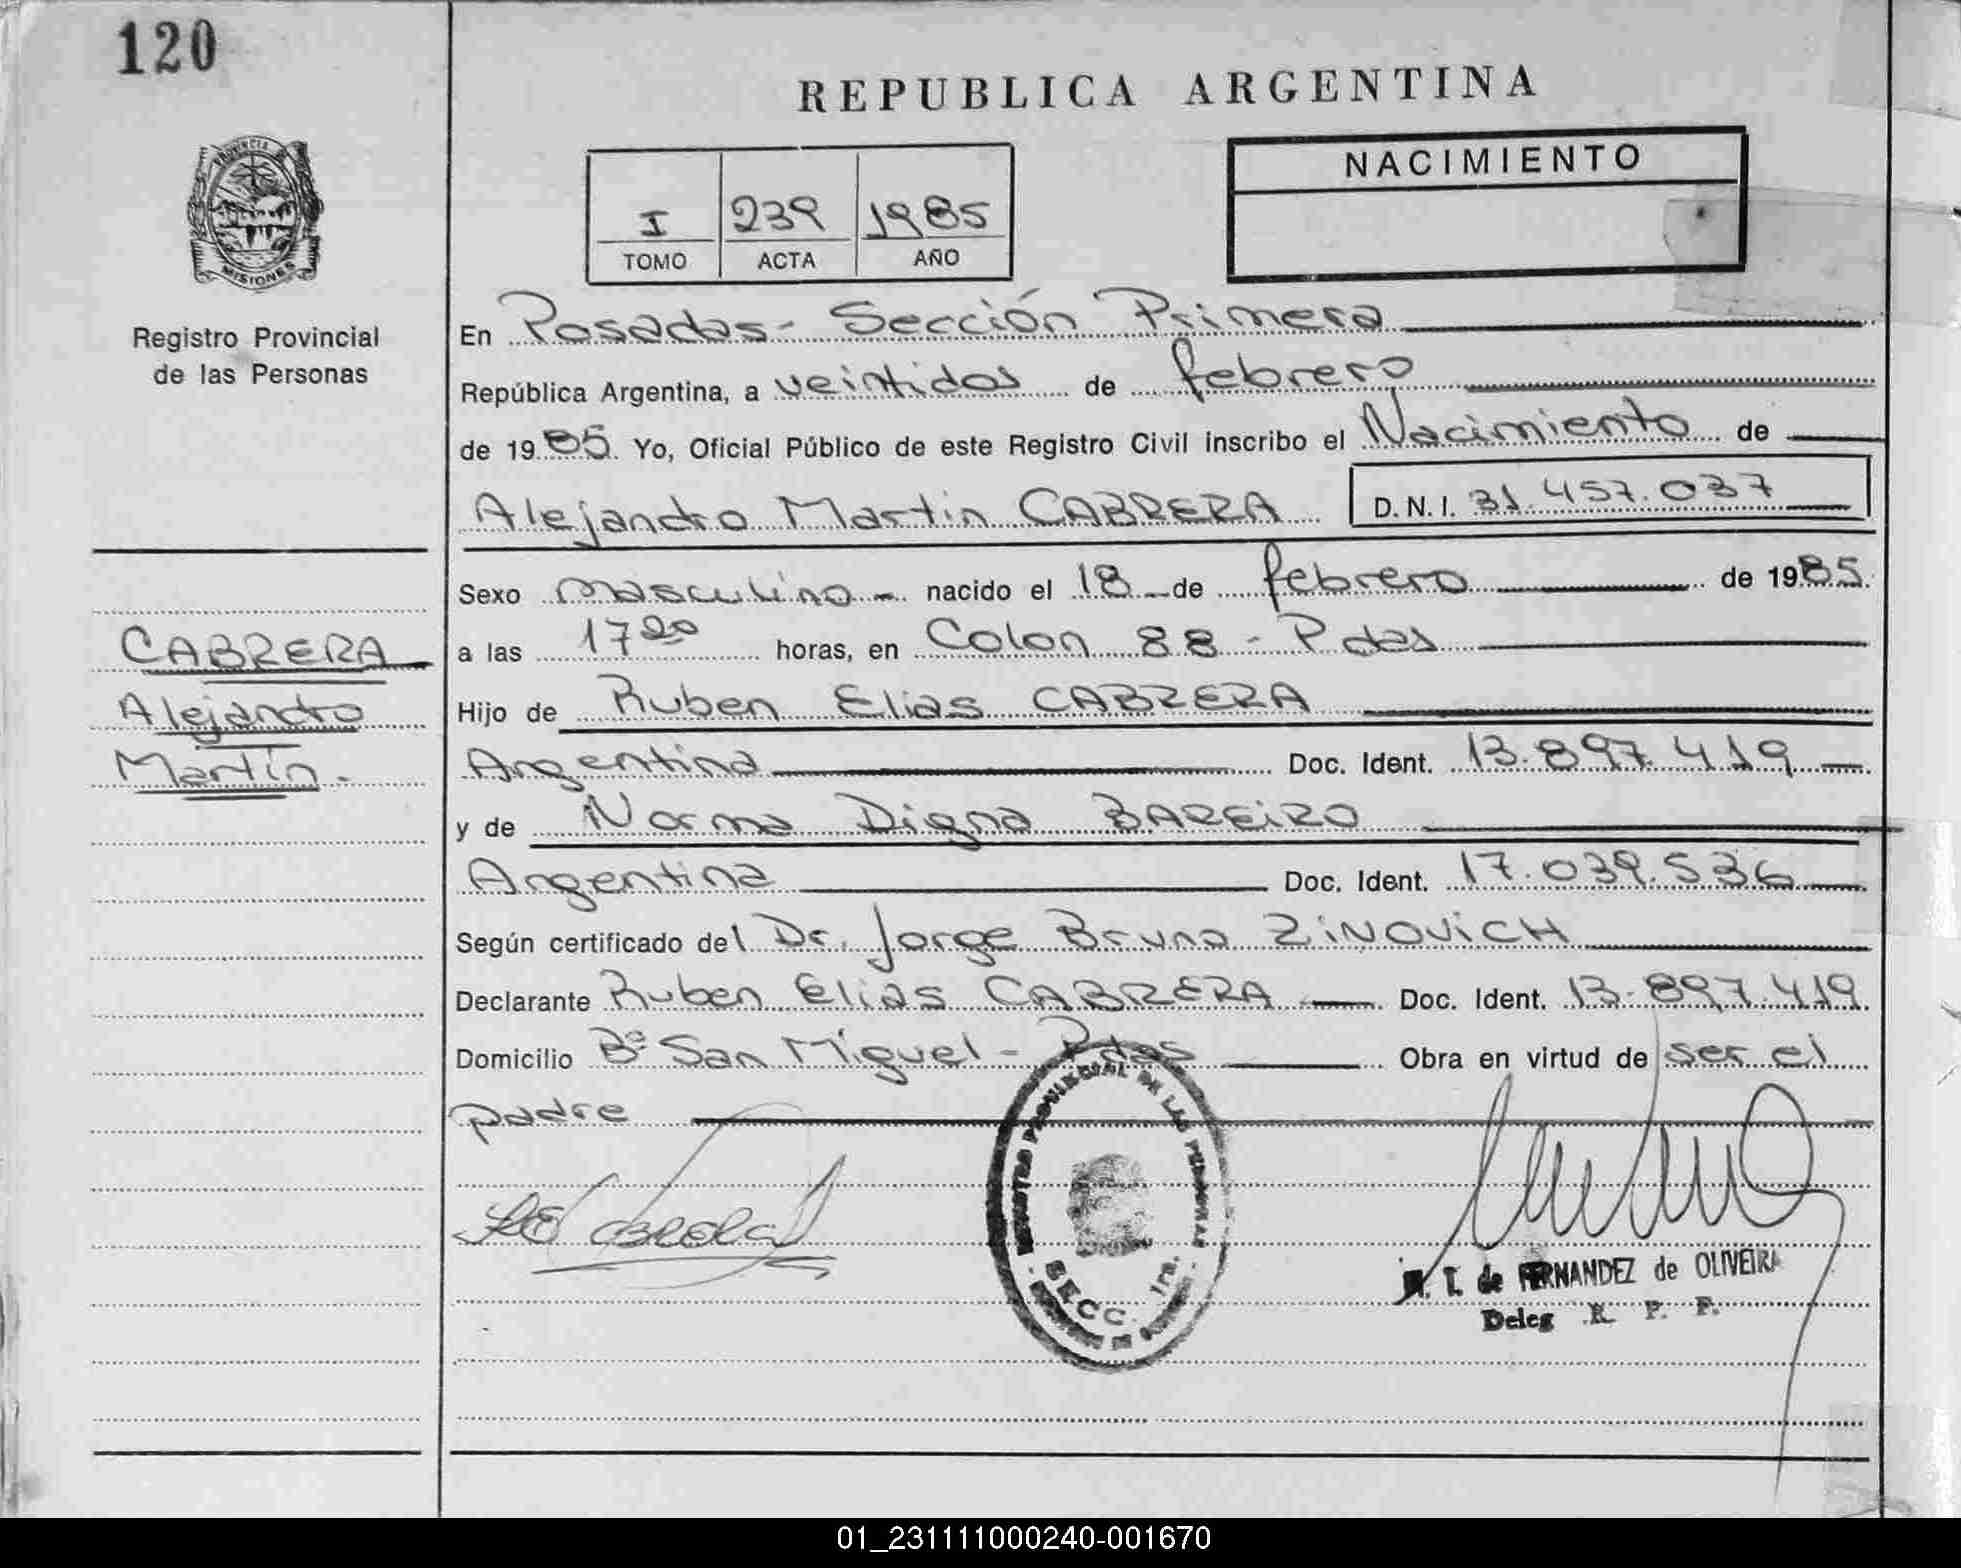 120
REPUBLICA ARGENTINA
NACIMIENTO
I 239 1985
TOMO ACTA AÑO
PROVINCIA
MISIONES
Registro Provincial
de las Personas
En Posadas - Sección Primera
República Argentina, a veintidos de febrero
de 1985. Yo, Oficial Público de este Registro Civil inscribo el Nacimiento de
Alejandro Martin CABRERA D.N.I. 31.457.037
Sexo masculino - nacido el 18 de febrero de 1985.
CABRERA
Alejandro
Martín.-
a las 17 20 horas, en Colon 88 - Pdas
Hijo de Ruben Elias CABRERA
Argentina Doc. Ident. 13.897.419
y de Norma Digna BAREiRO
Argentina Doc. Ident. 17.039.536
Según certificado del Dr. Jorge Bruno ZiNOViCH
Declarante Ruben Elias CABRERA Doc. Ident. 13.897.419
Domicilio Bº San Miguel - Pdas Obra en virtud de ser el
padre
REGISTRO PROVINCIAL DE LAS PERSONAS
SECC. 1ra.
T. de FERNANDEZ de OLIVEIRA
Deleg R. P. P.
01_231111000240-001670